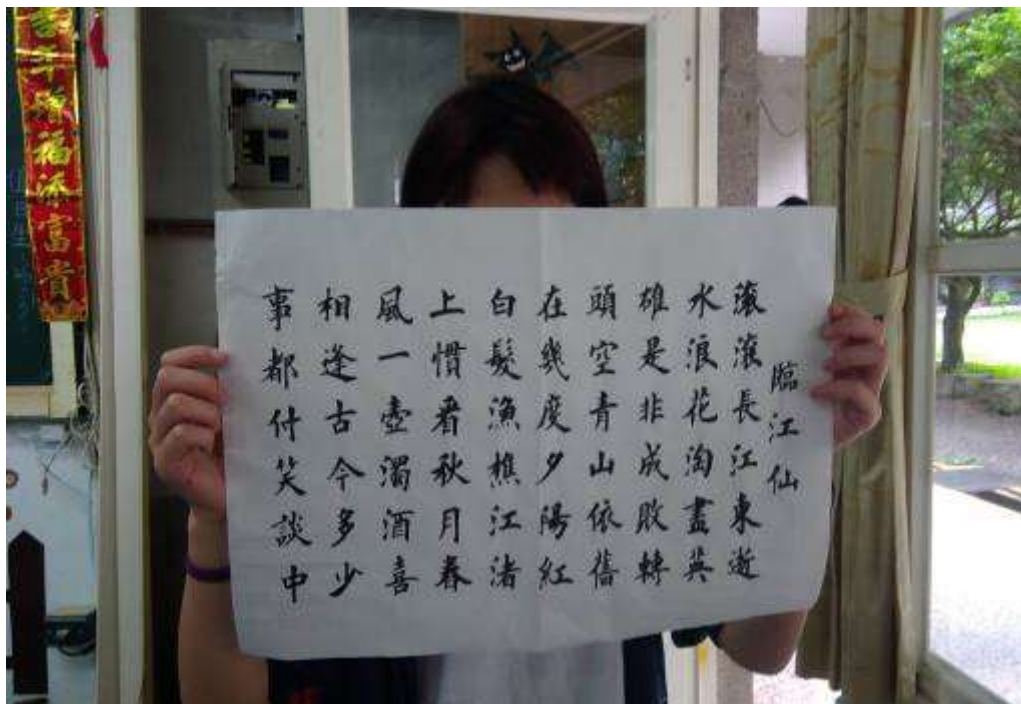 臨江仙
滾滾長江東逝
水浪花淘盡英
雄是非成敗轉
頭空青山依舊
在幾度夕陽紅
白髮漁樵江渚
上慣看秋月春
風一壺濁酒喜
相逢古今多少
事都付笑談中
福添富貴